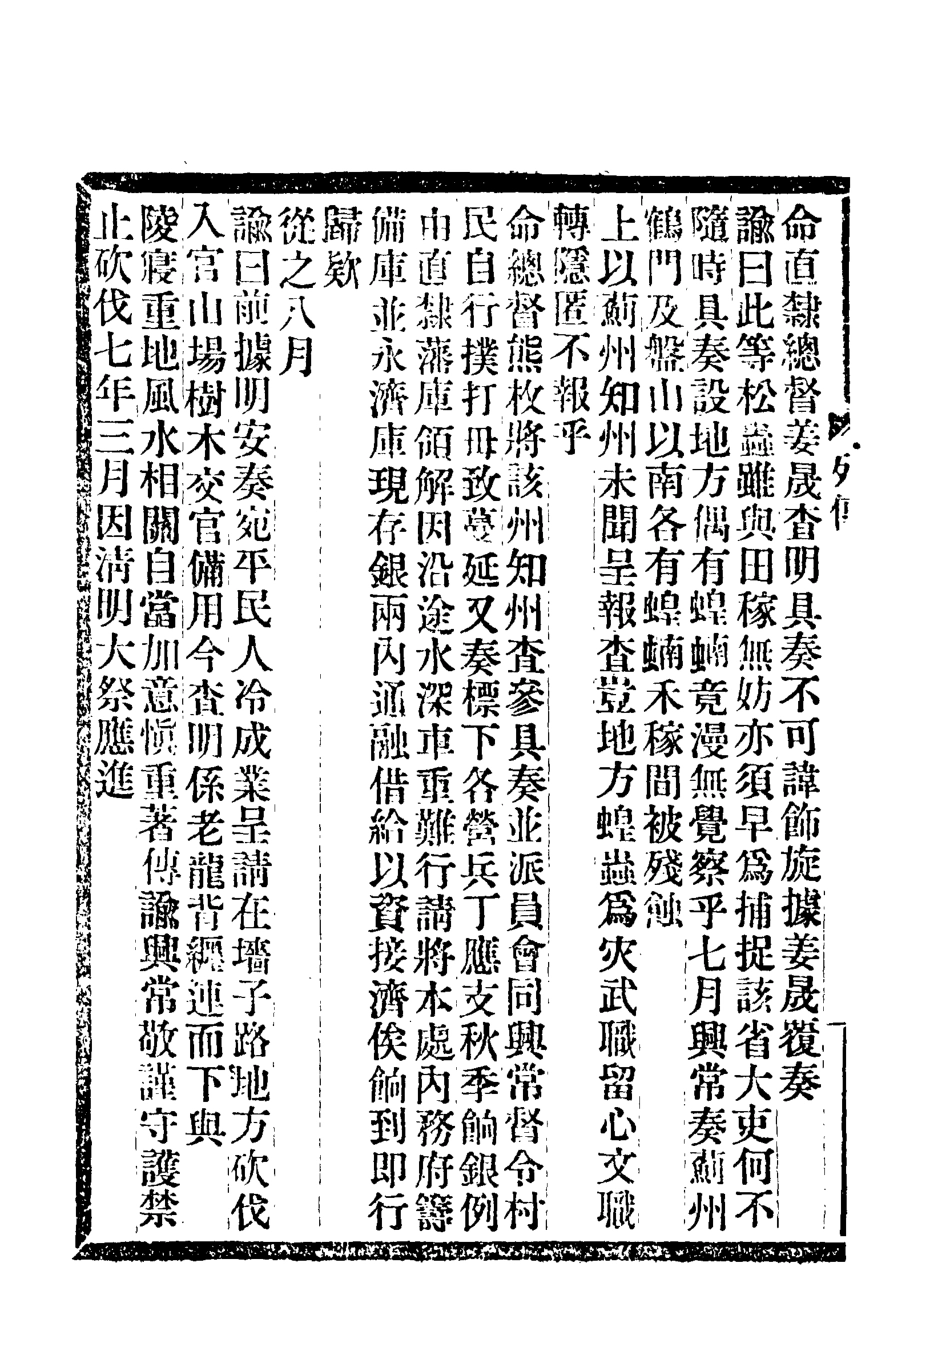 命直隸總督姜晟查明具奏不可諱飾旋據姜晟覆奏
諭曰此等松蟲雖與田稼無妨亦須早爲捕捉該省大吏何不
隨時具奏設地方偶有蝗蝻竟漫無覺察乎七月興常奏薊州
鶴門及盤山以南各有蝗蝻禾稼間被殘蝕
上以薊州知州未聞呈報查豈地方蝗蟲爲灾武職留心文職
轉隱匿不報乎
命總督熊枚將該州知州查參具奏並派員會同興常督令村
民自行撲打毋致蔓延又奏標下各營兵丁應支秋季餉銀例
由直隸藩庫領解因沿途水深車重難行請將本處內務府籌
備庫並永濟庫現存銀兩內通融借給以資接濟俟餉到即行
歸欵
從之八月
諭曰前據明安奏宛平民人冷成業呈請在墻子路地方砍伐
入官山場樹木交官備用今查明係老龍背纒連而下與
陵寢重地風水相關自當加意愼重著傳諭興常敬謹守護禁
止砍伐七年三月因清明大祭應進
列傳